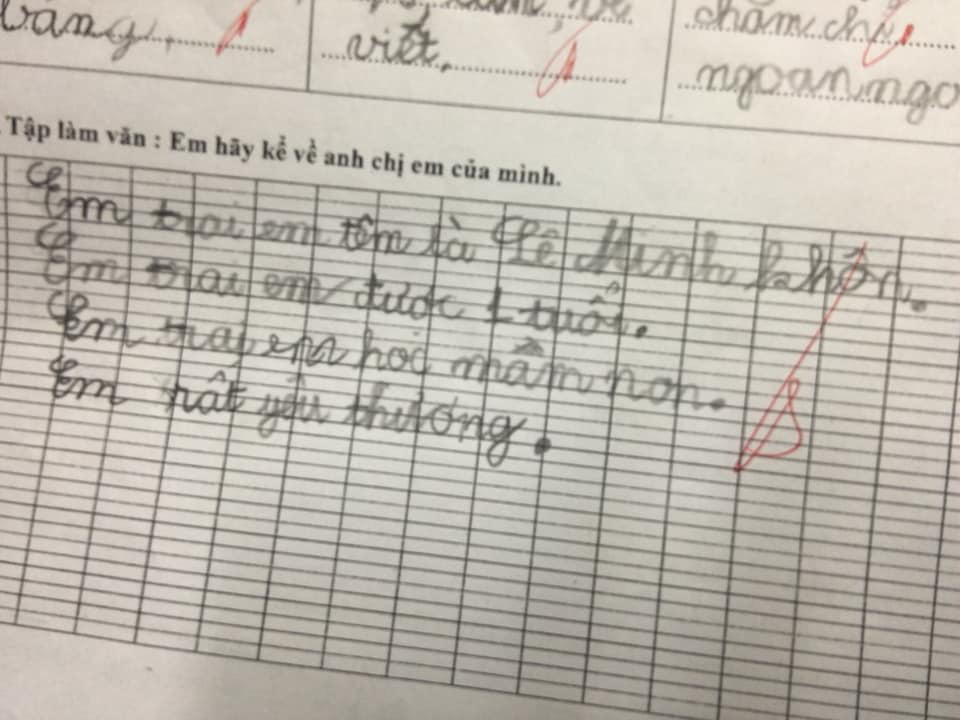 văng.
viết.
chăm chỉ
ngoan ngo
Tập làm văn : Em hãy kể về anh chị em của mình.
Em trai em tên là Lê Minh khôn.
Em trai em được 1 tuổi.
Em trai em học mầm non.
Em rất yêu thương.